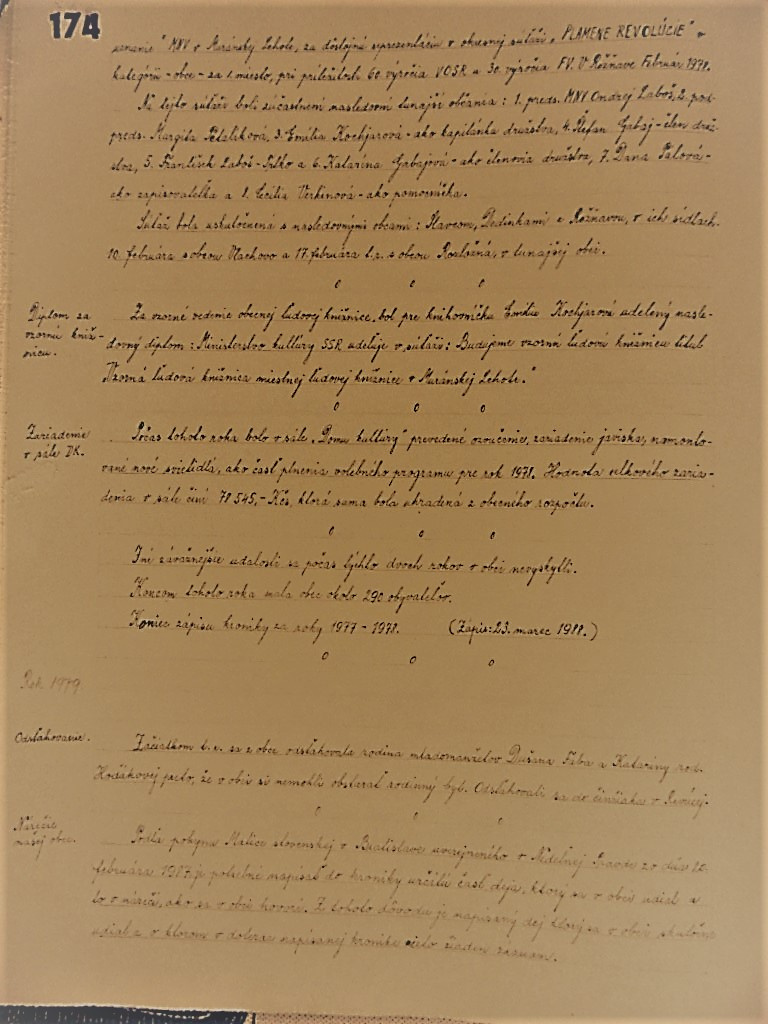 174
uznanie" MNV v Muránskej Lehote, za dôstojnú reprezentáciu v okresnej súťaži „PLAMENE REVOLÚCIE" v
kategórii - obce - za 1. miesto, pri príležitosti 60. výročia VOSR a 30. výročia FV. V Rožňave Február 1978.
Na tejto súťaži boli zúčastnení nasledovní tunajší občania: 1. preds. MNV Ondrej Laboš, 2. pod-
preds. Margita Petaliková, 3. Emília Kochjarová - ako kapitánka družstva, 4. Štefan Gabaj - člen druž-
stva, 5. František Laboš - a 6. Katarína Gabajová - ako členovia družstva, 7. Dana Palová -
ako zapisovateľka a 8. Cecília Verkinová - ako pomocníčka.
Súťaž bola uskutočnená s nasledovnými obcami: Slavcom, Dedinkami a Rožňavou, v ich sídlach.
10. februára s obcou Vlachovo a 17. februára t.r. s obcou Rozložná, v tunajšej obci.
Diplom za
vzornú kniž-
nicu.
Za vzorné vedenie obecnej ľudovej knižnice, bol pre knihovníčku Emíliu Kochjarovú udelený nasle-
dovný diplom: Ministerstvo kultúry SSR udeľuje v súťaži: Budujeme vzornú ľudovú knižnicu titul
„Vzorná ľudová knižnica miestnej ľudovej knižnice v Muránskej Lehote."
Zariadenie
v sále DK.
Počas tohoto roka bolo v sále „Domu kultúry" prevedené ozvučenie, zariadenie javiska, namonto-
vané nové svietidlá, ako časť plnenia volebného programu pre rok 1978. Hodnota celkového zaria-
denia v sále činí 78 545,- Kčs, ktorá suma bola uhradená z obecného rozpočtu.
Iné závažnejšie udalosti sa počas týchto dvoch rokov v obci nevyskytli.
Koncom tohoto roka mala obec okolo 290 obyvateľov.
Koniec zápisu kroniky za roky 1977 - 1978. (Zápis: 23. marec 1988.)
Rok 1979
Odsťahovanie.
Začiatkom t. r. sa z obce odsťahovala rodina mladomanželov Dušana Fába a Kataríny rod.
Hočákovej preto, že v obci si nemohli obstarať rodinný byt. Odsťahovali sa do činžiaku v Revúcej.
Nárečie
našej obce.
Podľa pokynu Matice slovenskej v Bratislave uverejneného v Nedeľnej Pravde zo dňa
februára 1987 je potrebné napísať do kroniky určitú časť deja, ktorý sa v obci udial a
to v nárečí, ako sa v obci hovorí. Z tohoto dôvodu je napísaný dej ktorý sa v obci skutočne
udial a o ktorom v doteraz napísanej kronike nieto žiaden záznam.